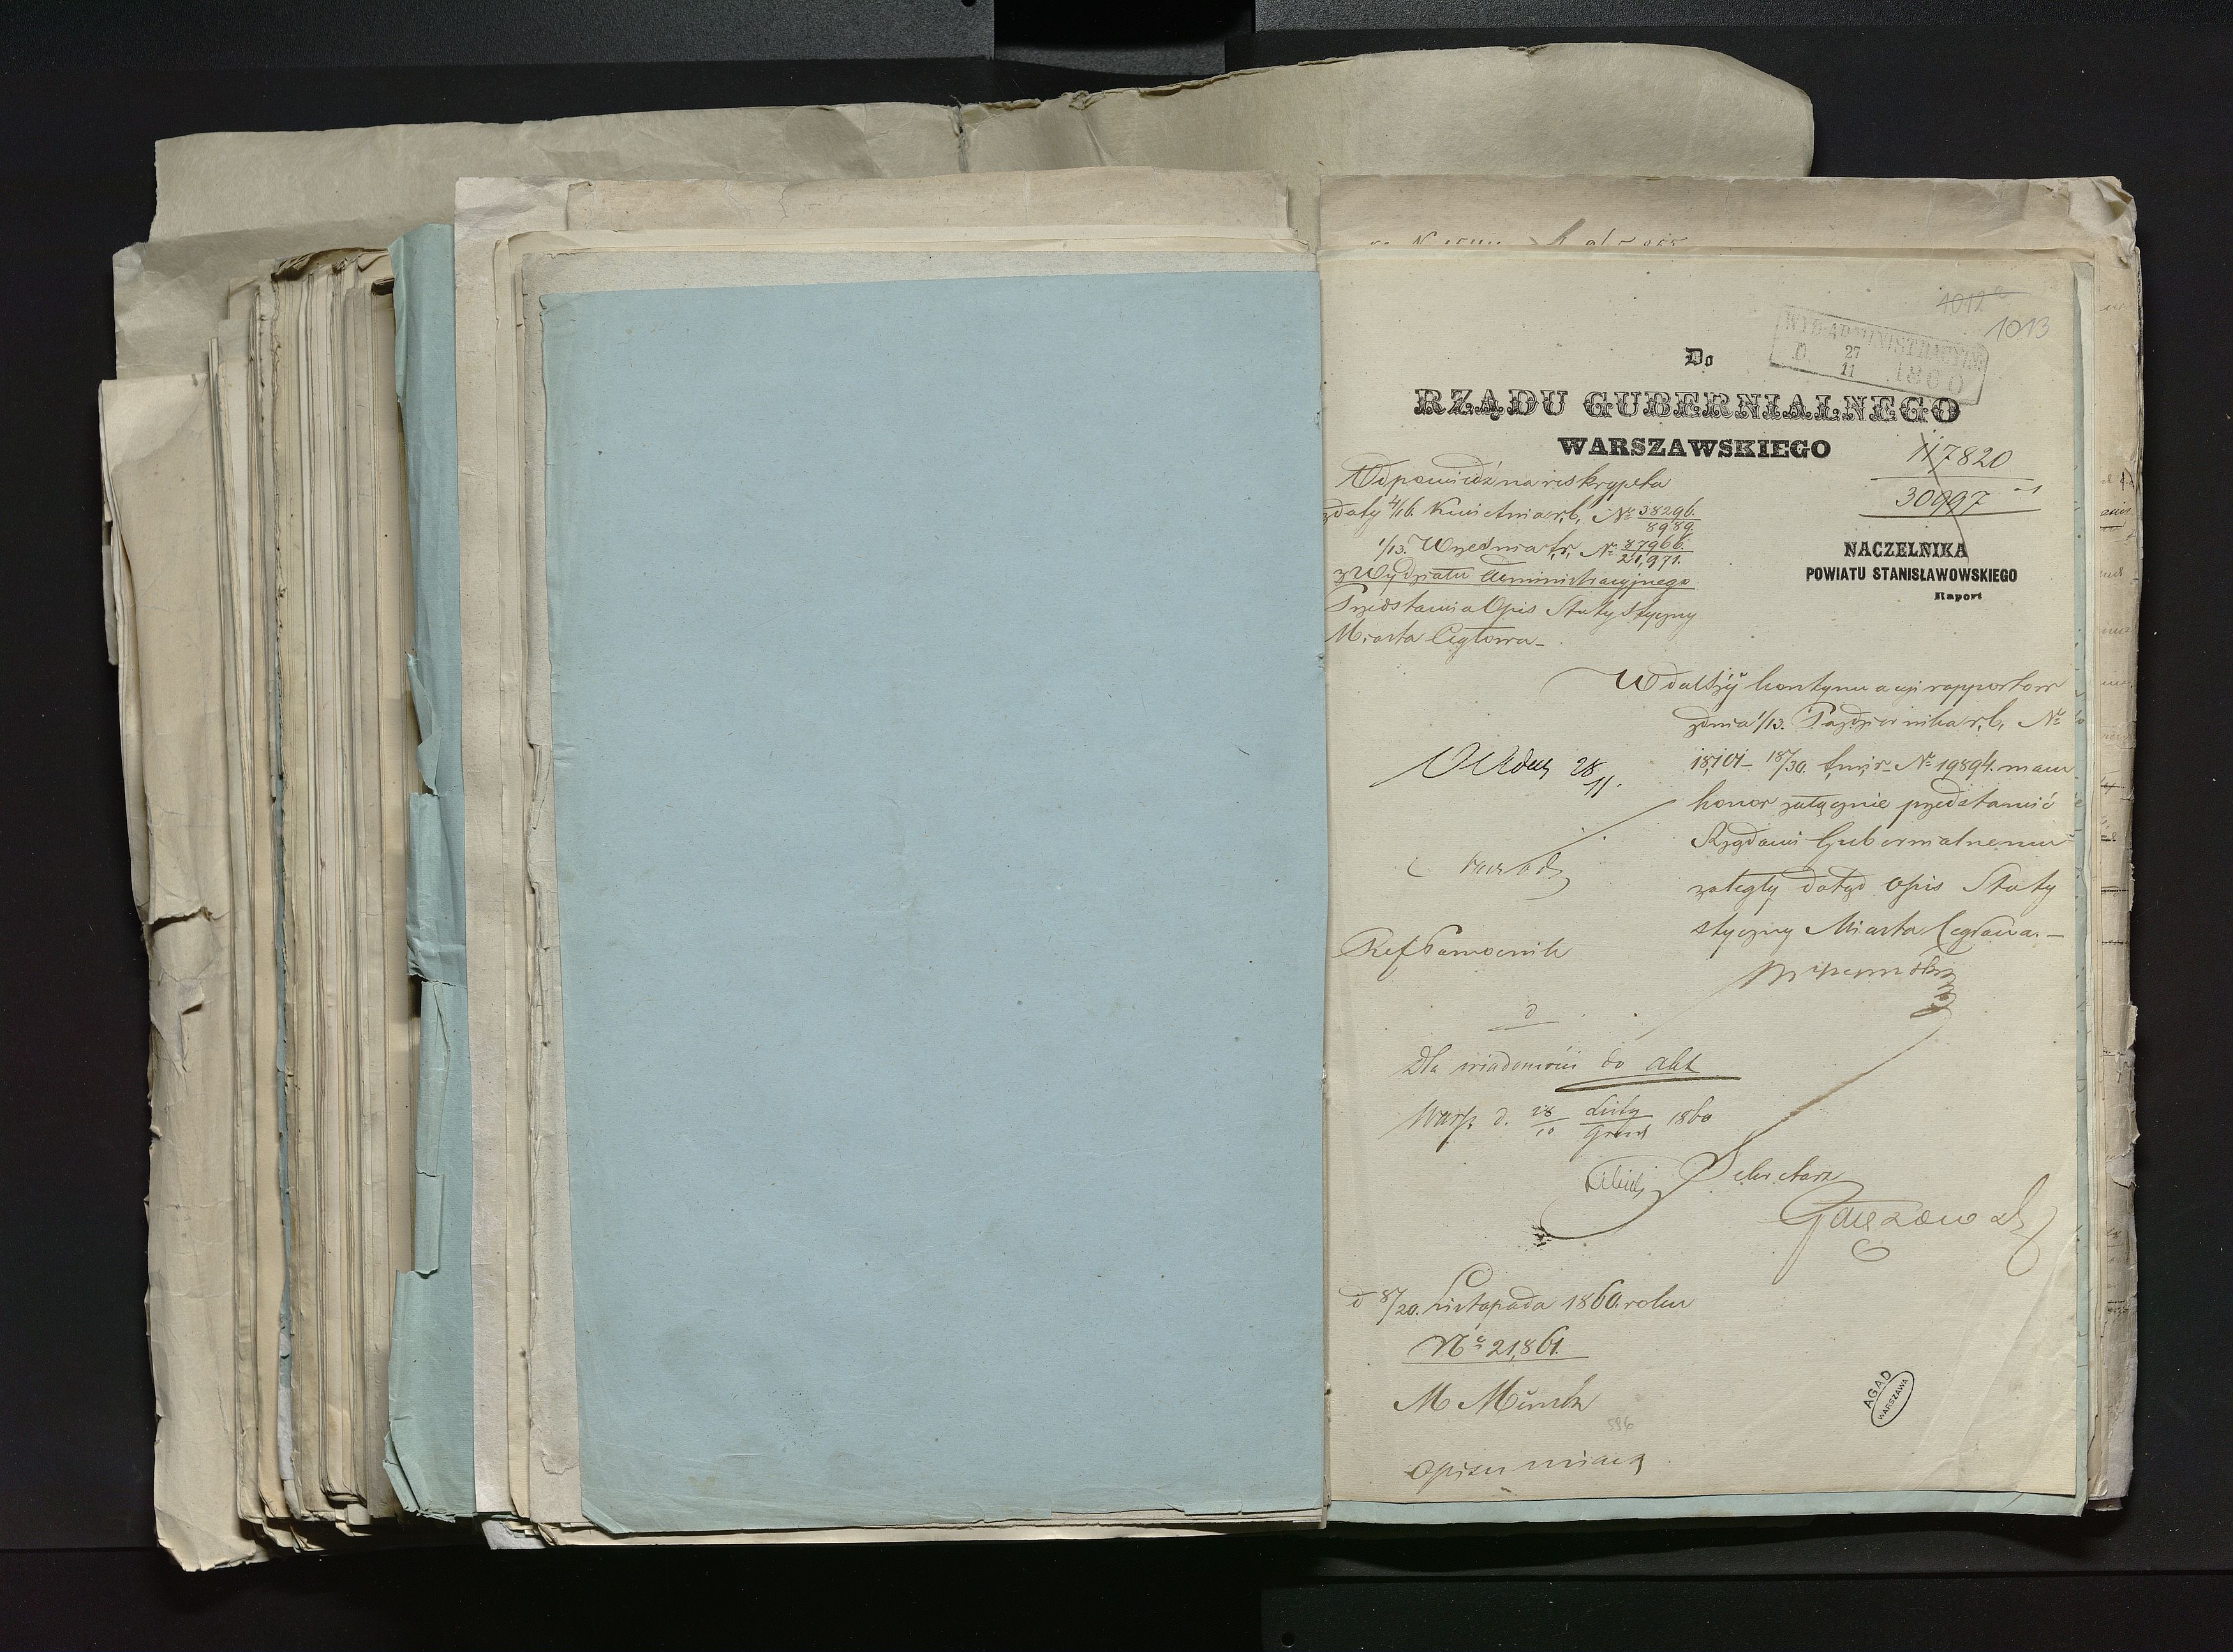 1012
1013
WYD. ADMINISTRACYJNY
D. 27 11 1860
Do
RZĄDU GUBERNIALNEGO
WARSZAWSKIEGO
117820
30997
Odpowiedź na reskrypta
z daty 4/16. Kwietnia r.b. № 38296./8989.
1/13. Września t.r. № 87966./21,971.
z Wydziału Administracyjnego
Przedstawia Opis Statystyczny
Miasta Cegłowa_
NACZELNIKA
POWIATU STANISŁAWOWSKIEGO
Raport
W dalszej kontynuacyi rapportów
z dnia 1/13. Października r.b. №
18,101_ 18/30. t.m.i r_ № 19894. mam
honor załącznie przedstawić
Rządowi Gubernialnemu
zaległy dotąd Opis Staty
styczny Miasta Cegłowa._
28/11.
Ref Pomocnik
Dla wiadomości do akt
Warsz. d. 28/10 Listp/Grud 1860
Sekretarz
d 8/20. Listopada 1860. roku
№ 21,861.
M Mińsk
596
Opisu miast
AGAD
WARSZAWA